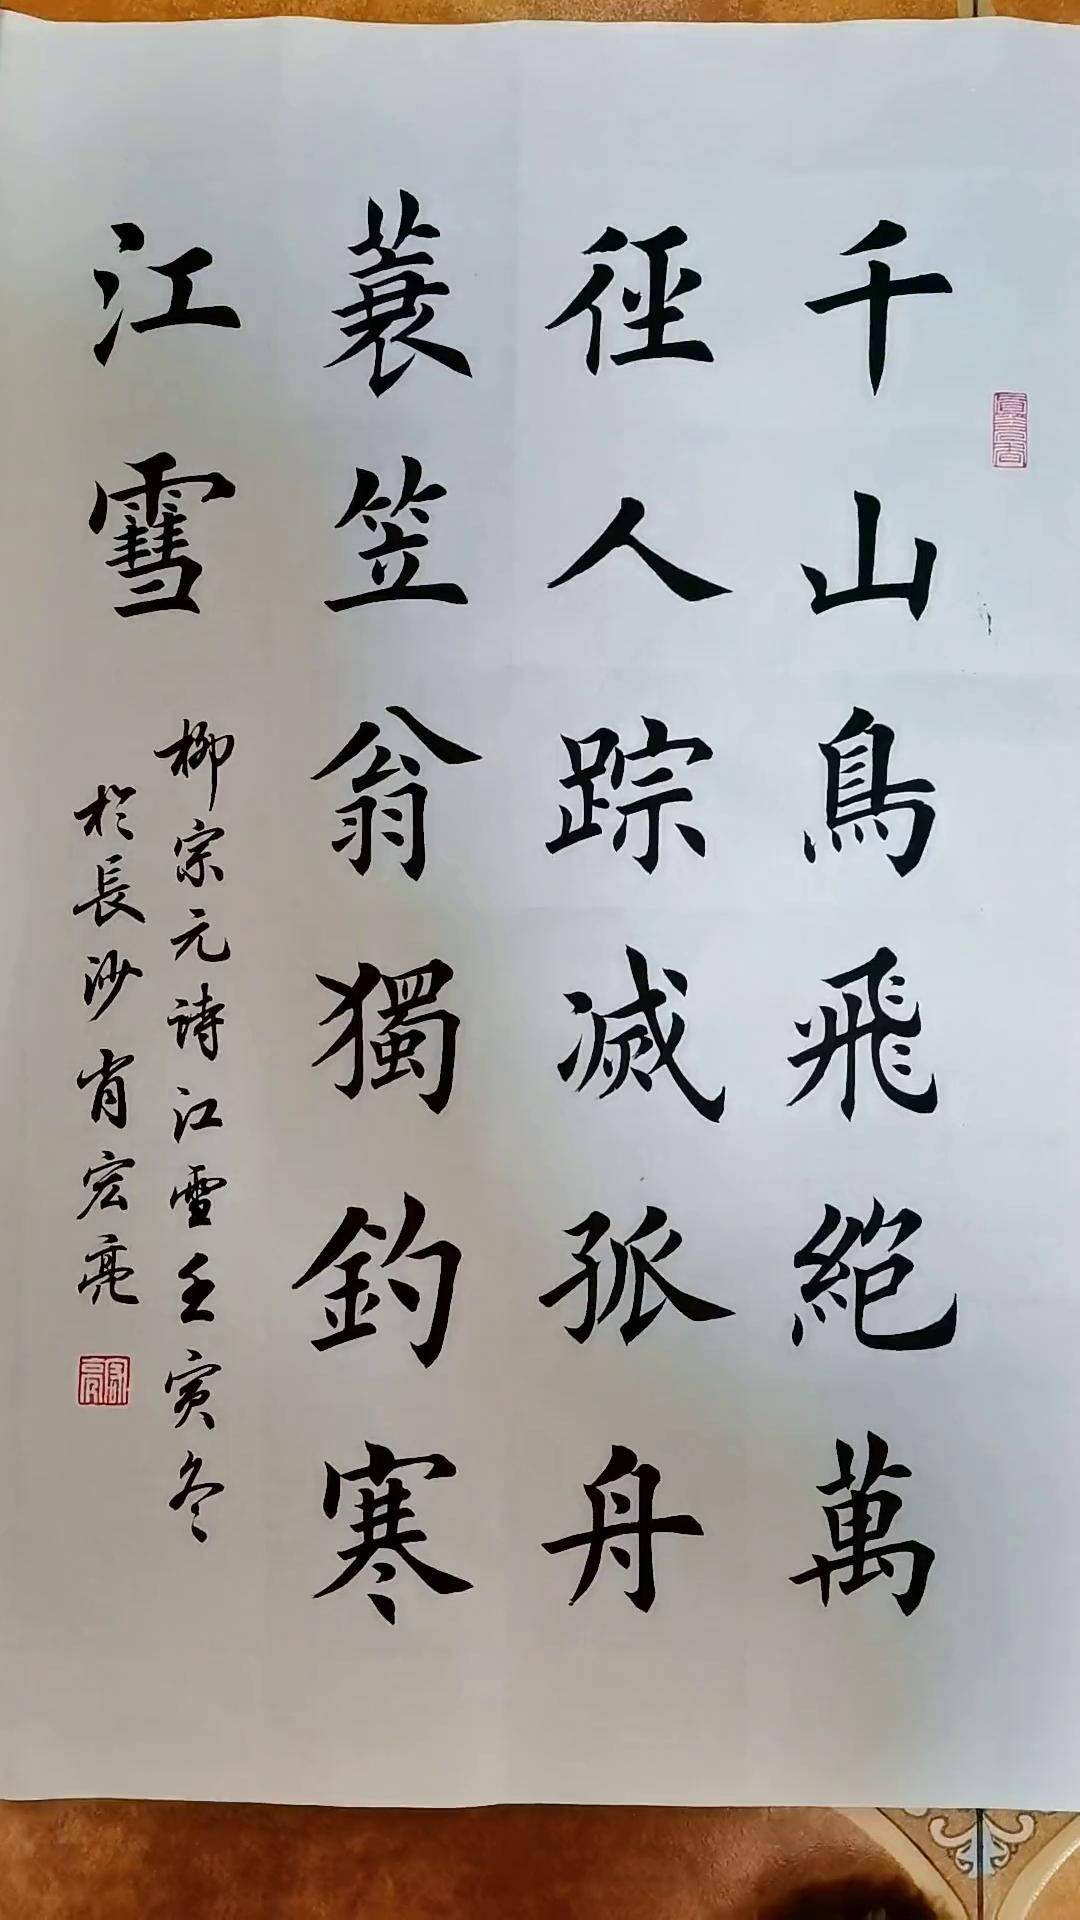 千山鳥飛絕萬
徑人踪滅孤舟
蓑笠翁獨釣寒
江雪
柳宗元詩江雪壬寅冬
於長沙肖宏亮